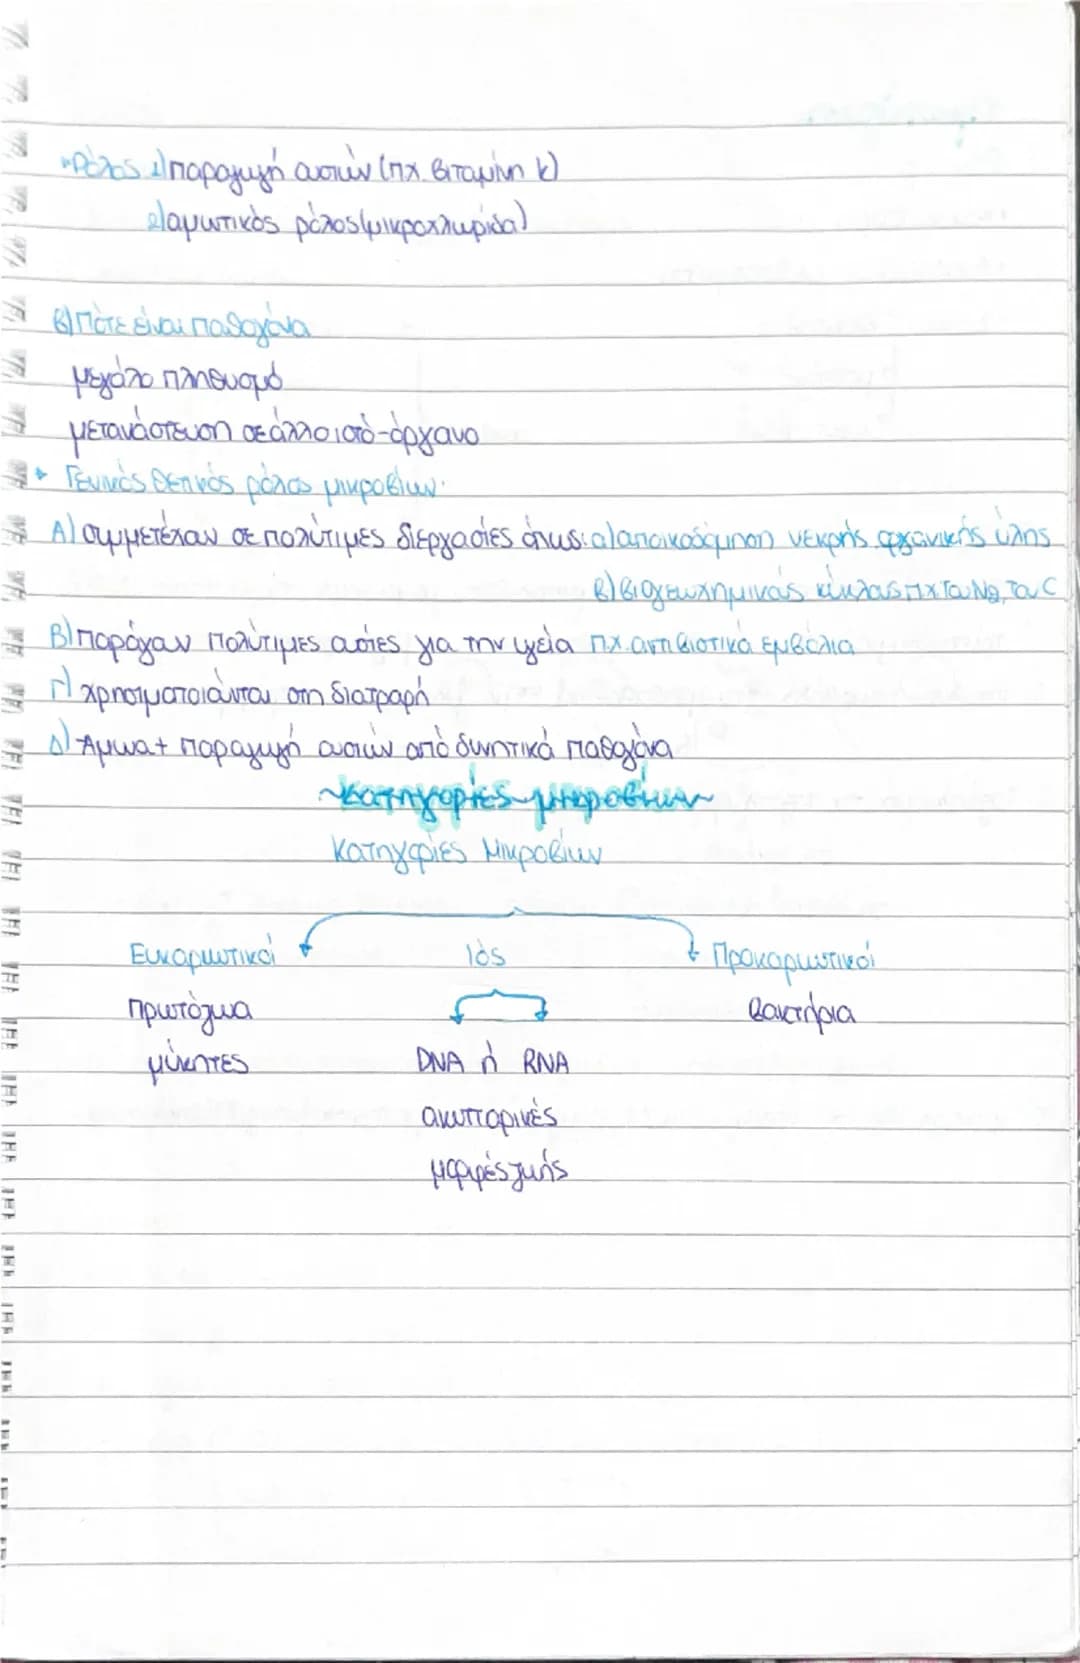 Ρόλος 1) παραγωγή ουσιών (πχ. βιταμίνη Κ)
2) αμυντικός ρόλος (μικροχλωρίδα)
Β) Πότε είναι παθογόνα
μεγάλο πληθυσμό
μετανάστευση σε άλλο ιστό-όργανο
Γενικός θετικός ρόλος μικροβίων:
Α) συμμετέχουν σε πολύτιμες διεργασίες όπως: α) αποικοδόμηση νεκρής οργανικής ύλης
β) βιογεωχημικούς κύκλους πχ του N2, του C
Β) Παράγουν πολύτιμες ουσίες για την υγεία π.χ. αντιβιοτικά εμβόλια
Γ) χρησιμοποιούνται στη διατροφή
Δ) Άμυνα + παραγωγή ουσιών από δυνητικά παθογόνα
~Κατηγορίες μικροβίων~
Κατηγορίες Μικροβίων
Ευκαρυωτικοί Ιός Προκαρυωτικοί
Πρωτόζωα βακτήρια
μύκητες DNA ή RNA
ακυτταρικές
μορφές ζωής